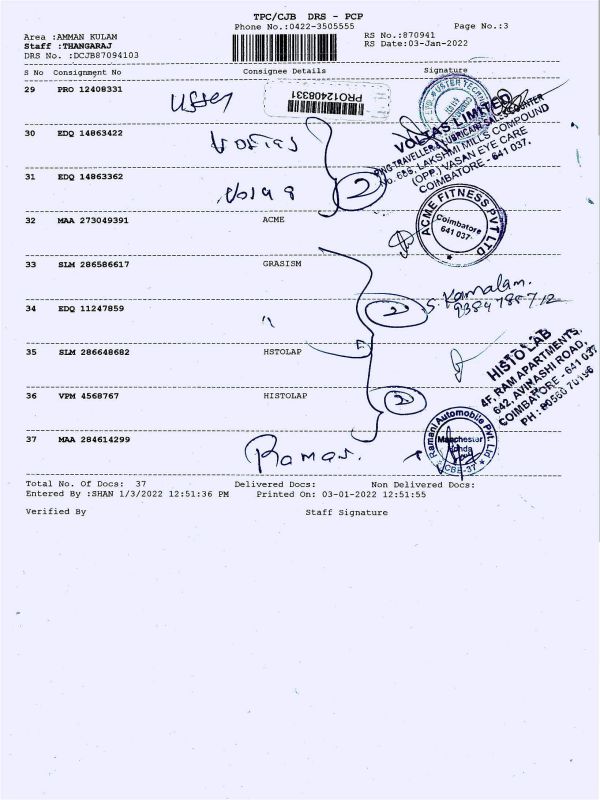 TPC/CJB DRS - PCP
Phone No.:0422-3505555 Page No.:3
Area :AMMAN KULAM RS No.:870941
Staff :THANGARAJ RS Date:03-Jan-2022
DRS No. :DCJB87094103
S No Consignment No Consignee Details Signature
29 PRO 12408331 PRO12408331
30 EDQ 14863422 Voltas
VOLTAS LIMITED
LAKSHMI MILLS COMPOUND
(OPP.) VASAN EYE CARE
COIMBATORE - 641 037.
31 EDQ 14863362 2
32 MAA 273049391 ACME
ACME FITNESS PVT LTD
Coimbatore
641 037
33 SLM 286586617 GRASISM
34 EDQ 11247859 " 2 S. Kamalam.
35 SLM 286648682 HSTOLAP
HISTOLAB
4F, RAM APARTMENTS,
642, AVINASHI ROAD,
COIMBATORE - 641 037
36 VPM 4568767 HISTOLAP 2
37 MAA 284614299 Raman.
Ramani Automobile Pvt. Ltd
Manchester
Honda
CBE-37
Total No. Of Docs: 37 Delivered Docs: Non Delivered Docs:
Entered By :SHAN 1/3/2022 12:51:36 PM Printed On: 03-01-2022 12:51:55
Verified By Staff Signature